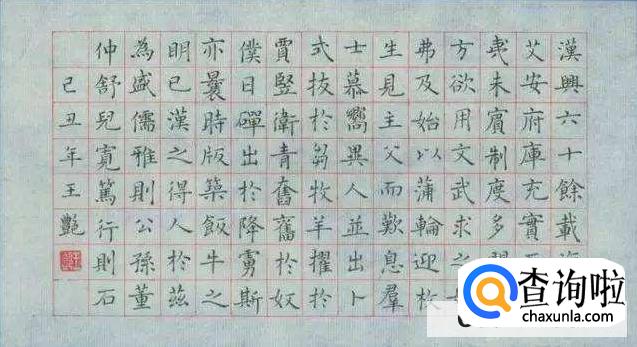 漢興六十餘載
艾安府庫充實
夷未賓制度多
方欲用文武求之
弗及始以蒲輪迎枚
生見主父而歎息羣
士慕嚮異人並出卜
式拔於芻牧羊擢於
賈豎衛青奮舊於奴
僕日磾出於降虜斯
亦曩時版築飯牛之
明已漢之得人於茲
為盛儒雅則公孫董
仲舒兒寬篤行則石
己丑年王艷
查询啦
chaxunla.com